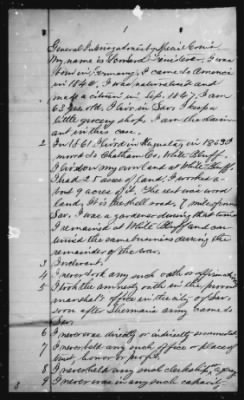 1
General Interrogatories by Special Com'r
My name is Bernard Benedict, I was
born in Germany. I came to America
in 1840. I was naturalized and
made a citizen in Sep. 1847. I am
63 years old. I live in Sav. I keep a
little grocery shop. I am the claim
ant in this case.
2 In 1861 I lived in
moved to Chatham Co. White Bluff.
I lived on my own land at White Bluff.
I had 35 acres of land, I worked a
bout 9 acres of it. The rest was wood
land. It is the shell road, 7 miles from
Sav. I was a gardener during this time
I remained at White Bluff and con
tinued the same business during the
remainder of the war.
3 I
4 I never took any such oath or affirmation
5 I took the amnesty oath in the provost
marshal's office in the city of Sav.
soon after Sherman's army came to
Sav.
6 I never was directly or indirectly
7 I never held any such office or place of
trust, honor or profit.
8 I never held any such clerkship, agency
9 I never was in any such capacity